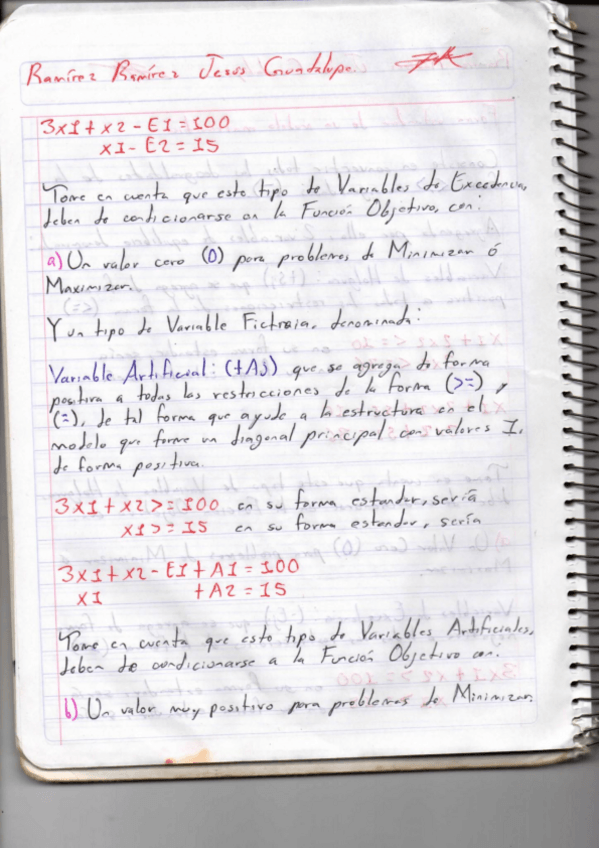 Ramírez Ramírez Jesus Guadalupe.
3x1 + x2 - E1 = 100
x1 - E2 = 15
Tome en cuenta que este tipo de Variables de Excedencia,
deben de condicionarse en la Función Objetivo, con:
a) Un valor cero (0) para problemas de Minimizar ó
Maximizar.
Y un tipo de Variable Fictraia, denominada:
Variable Artificial: (+Aj) que se agrega de forma
positiva a todas las restricciones de la forma (>=) y
(=), de tal forma que ayude a la estructura en el
modelo que forme un diagonal principal con valores 1,
de forma positiva.
3x1 + x2 >= 100 en su forma estandar, sería
x1 >= 15 en su forma estandar, sería
3x1 + x2 - E1 + A1 = 100
x1 + A2 = 15
Tome en cuenta que esto tipo de Variables Artificiales,
deben de condicionarse a la Función Objetivo con:
b) Un valor muy positivo para problemas de Minimizar.